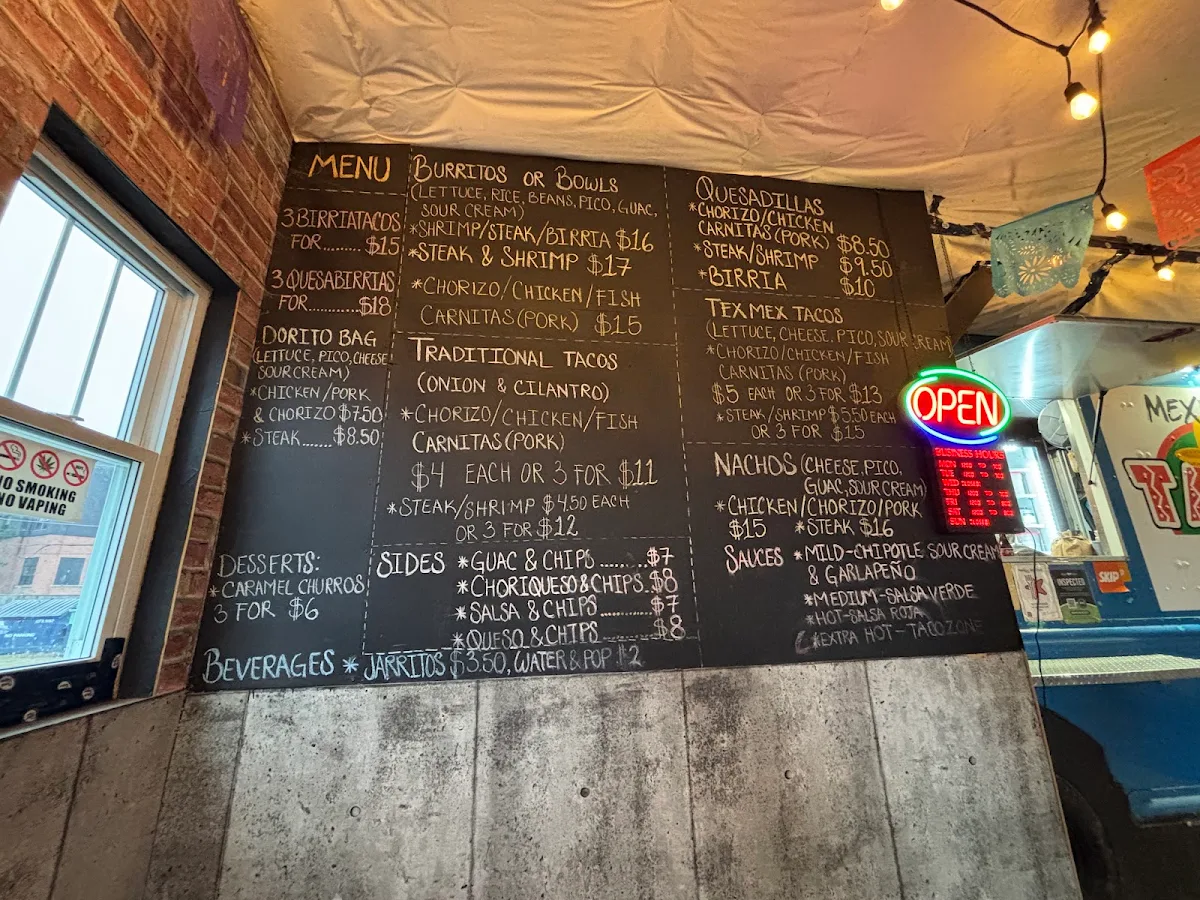 MENU
3 BIRRIA TACOS
FOR........$15
3 QUESABIRRIAS
FOR............$18
DORITO BAG
(LETTUCE, PICO, CHEESE
SOUR CREAM)
*CHICKEN/PORK
& CHORIZO $7.50
*STEAK......$8.50
DESSERTS:
*CARAMEL CHURROS
3 FOR $6
BURRITOS OR BOWLS
(LETTUCE, RICE, BEANS, PICO, GUAC,
SOUR CREAM)
*SHRIMP/STEAK/BIRRIA $16
*STEAK & SHRIMP $17
*CHORIZO/CHICKEN/FISH
CARNITAS (PORK) $15
TRADITIONAL TACOS
(ONION & CILANTRO)
*CHORIZO/CHICKEN/FISH
CARNITAS (PORK)
$4 EACH OR 3 FOR $11
*STEAK/SHRIMP $4.50 EACH
OR 3 FOR $12
SIDES *GUAC & CHIPS..........$7
*CHORIQUESO & CHIPS.$8
*SALSA & CHIPS..........$7
*QUESO & CHIPS..........$8
BEVERAGES * JARRITOS $3.50, WATER & POP $2
QUESADILLAS
*CHORIZO/CHICKEN
CARNITAS (PORK) $8.50
*STEAK/SHRIMP $9.50
*BIRRIA $10
TEX MEX TACOS
(LETTUCE, CHEESE, PICO, SOUR CREAM)
*CHORIZO/CHICKEN/FISH
CARNITAS (PORK)
$5 EACH OR 3 FOR $13
*STEAK/SHRIMP $5.50 EACH
OR 3 FOR $15
NACHOS (CHEESE, PICO,
GUAC, SOUR CREAM)
*CHICKEN/CHORIZO/PORK
$15 *STEAK $16
SAUCES *MILD-CHIPOTLE SOUR CREAM
& GARLAPEÑO
*MEDIUM-SALSA VERDE
*HOT-SALSA ROJA
*EXTRA HOT-TACOZONE
OPEN
BUSINESS HOURS
MON
TUE
WED
THU
FRI
SAT
SUN
NO SMOKING
NO VAPING
INSPECTED
SKIP